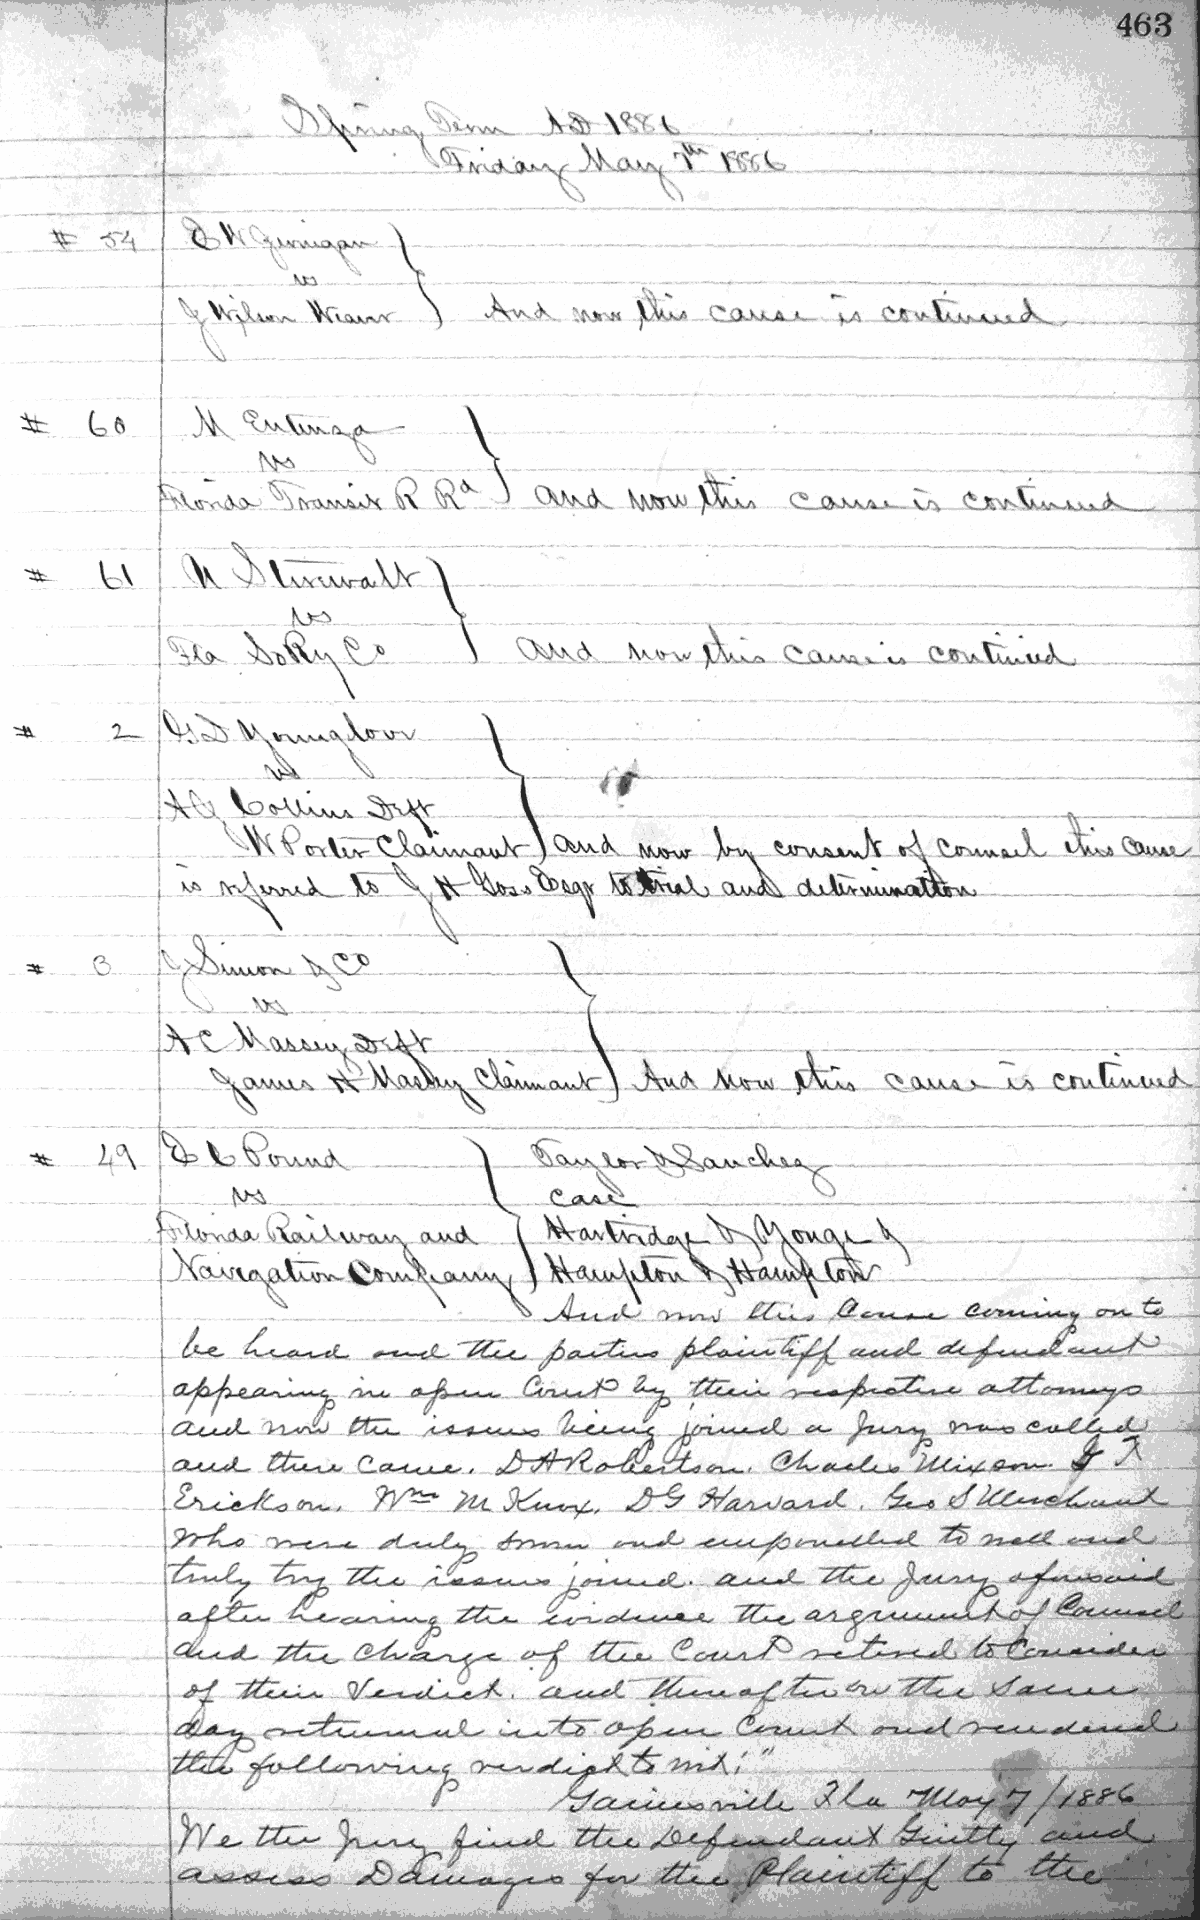 463
Spring Term AD 1886
Friday May 7th 1886
# 54 E W Jernigan
vs
J Wilson Weaver } And now this cause is continued
# 60 M Entenza
vs
Florida Transit R Rd } and now this cause is continued
# 61 N Stirewalt
vs
Fla So Ry Co } and now this cause is continued
# 2 G D Younglove
vs
A G Collins Deft
W Porter Claimant } and now by consent of counsel this cause
is referred to J H Goss Esqr to trial and determination
# 3 J Simon & Co
vs
A C Massey Deft
James H Massey Claimant } And now this cause is continued
# 49 E C Pound } Taylor & Sanchez
vs case
Florida Railway and Hartridge & Yonge &
Navigation Company } Hampton & Hampton
And now this Cause coming on to
be heard and the parties plaintiff and defendant
appearing in open Court by their respective attorneys
and now the issues being joined a Jury was called
and there came. D H Robertson. Charles Mixson. J T
Erickson. Wm M Knox. D G Harvard. Geo S Merchant
who were duly sworn and empanelled to well and
truly try the issues joined. and the Jury aforesaid
after hearing the evidence the argument of Counsel
and the charge of the Court retired to Consider
of their Verdict. and thereafter on the same
day returned into open Court and rendered
the following verdict to wit; "
Gainesville Fla May 7/1886
We the Jury find the Defendant Guilty and
assess Damages for the Plaintiff to the